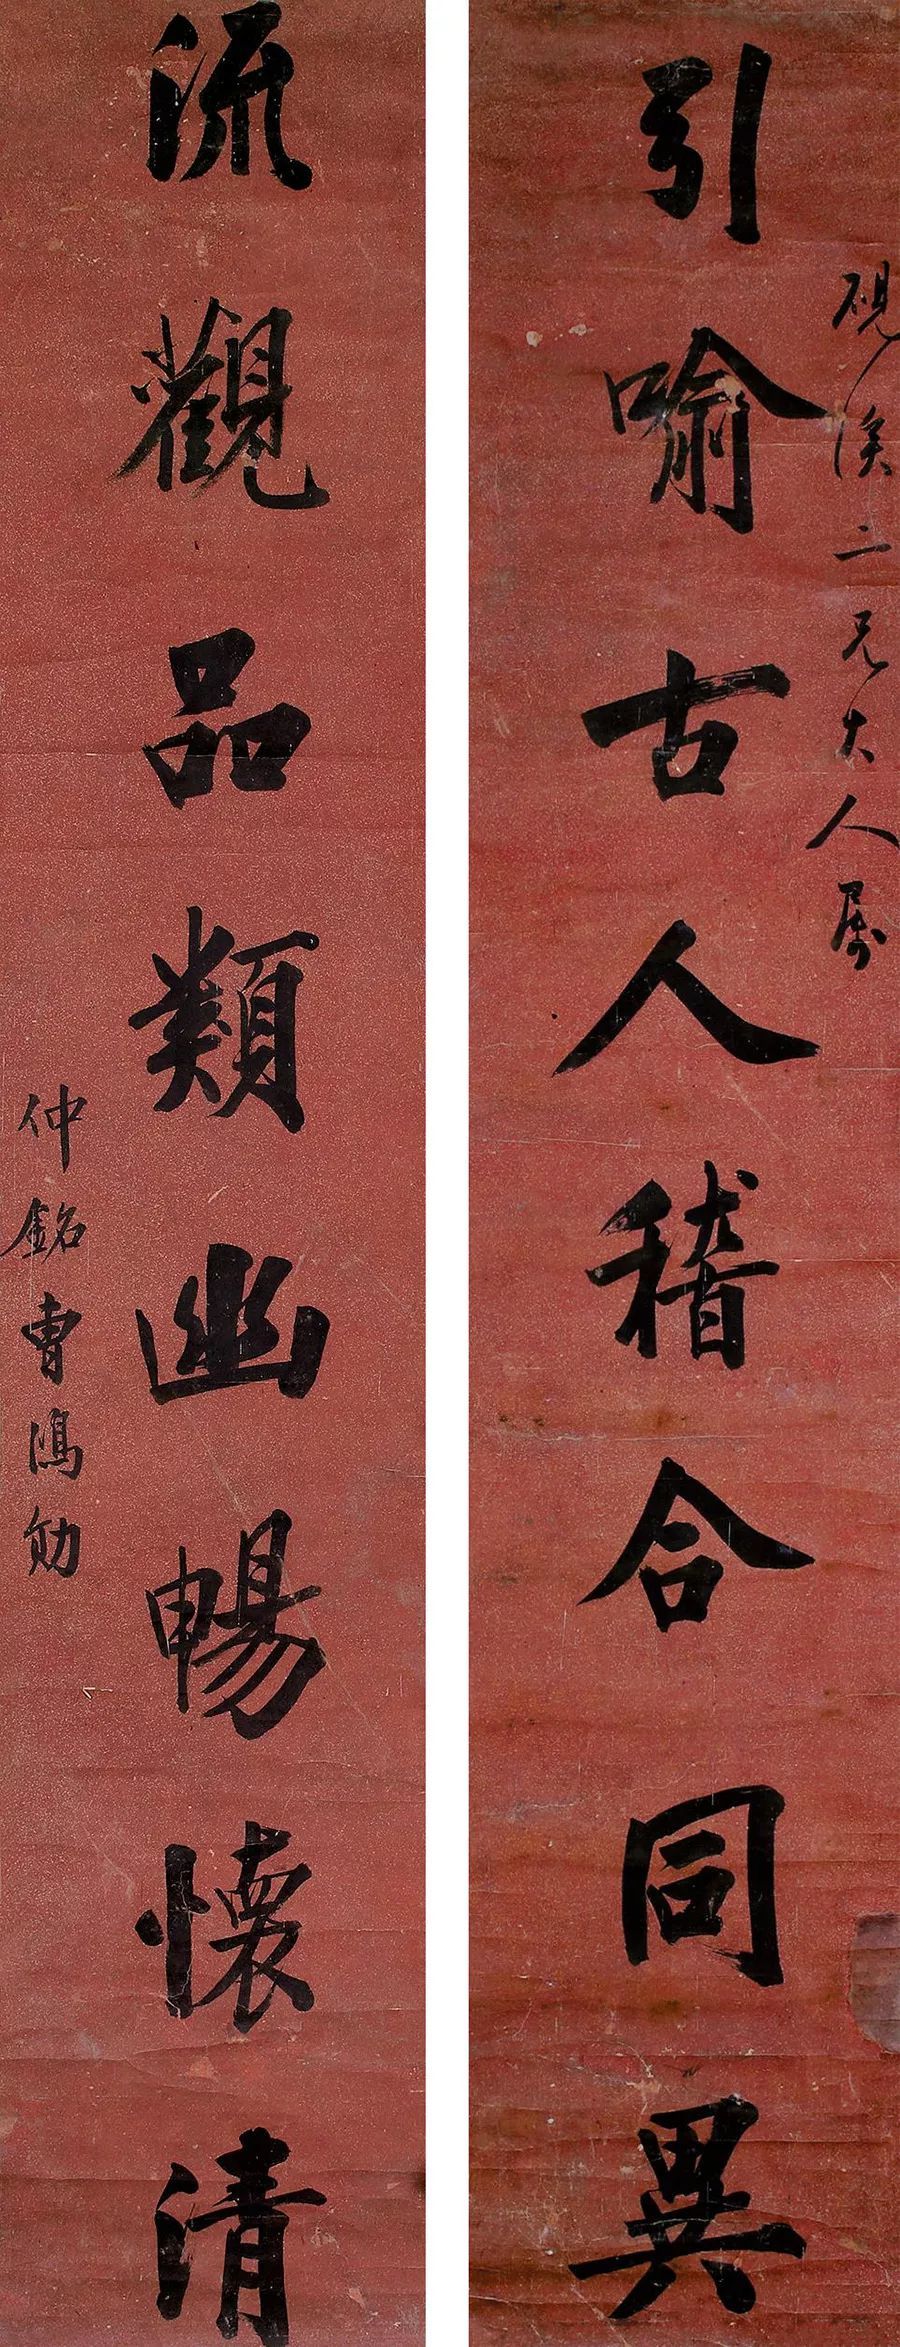 引喻古人稽合同異
硯溪二兄大人屬
流觀品類幽暢懷清
仲銘曹鴻勛